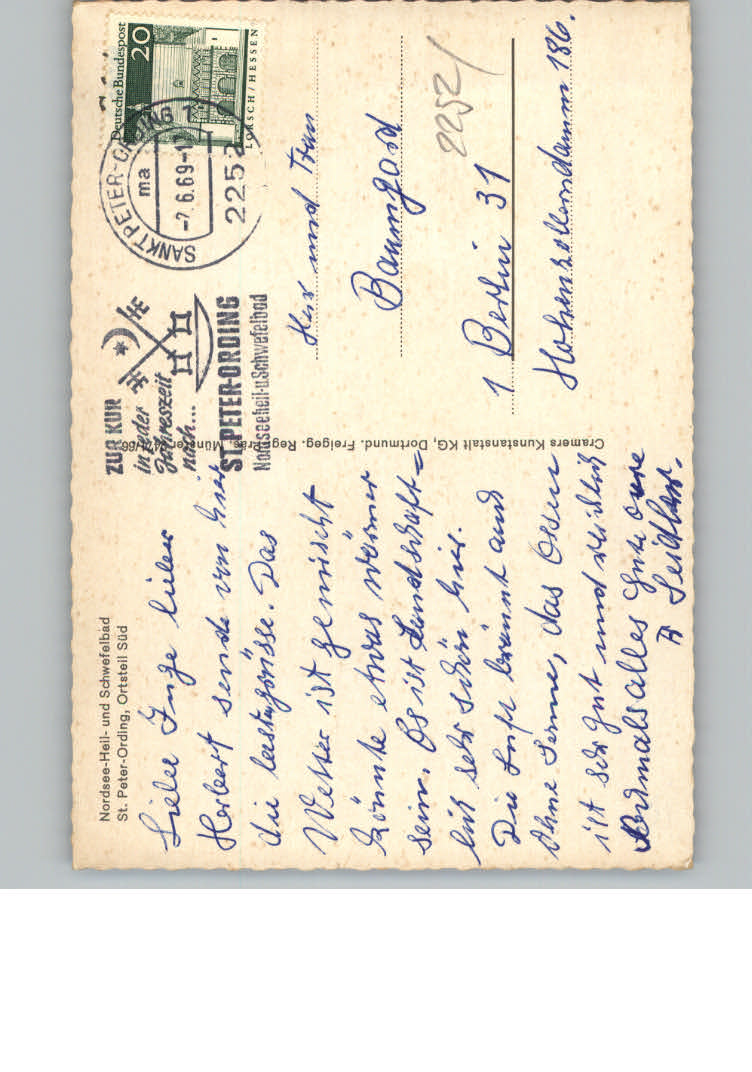 Nordsee-Heil- und Schwefelbad
St. Peter-Ording, Ortsteil Süd
Liebe Inge lieber
Herbert sende von hier
die besten Grüsse. Das
Wetter ist gemischt
könnte etwas wärmer
sein. Es ist Landschaft=
lich sehr schön hier.
Die Luft bräunt auch
ohne Sonne, das Essen
ist sehr gut und reichlich
Nochmals alles Gute
Cramers Kunstanstalt KG, Dortmund. Freigeg. Reg.
ZUR KUR
in jeder
Jahreszeit
nach...
ST. PETER-ORDING
Nordseeheil-u.Schwefelbad
SANKT PETER-ORDING 1
ma
-7.6.69-1
2252
Deutsche Bundespost
20
LORSCH/HESSEN
2252/
Herr und Frau
Baumgard
1 Berlin 31
Hohenzollerndamm 186.